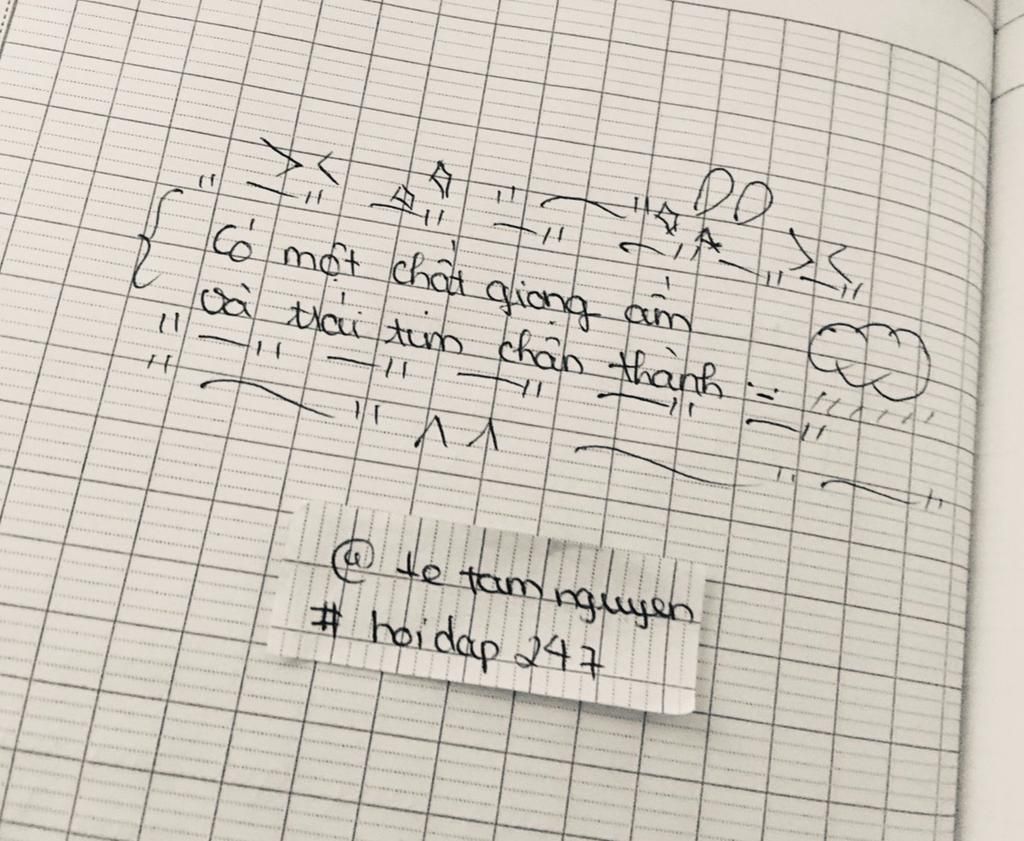 Có một chất giọng ấm
và trái tim chân thành =
@ te tam nguyen
# hoidap 247